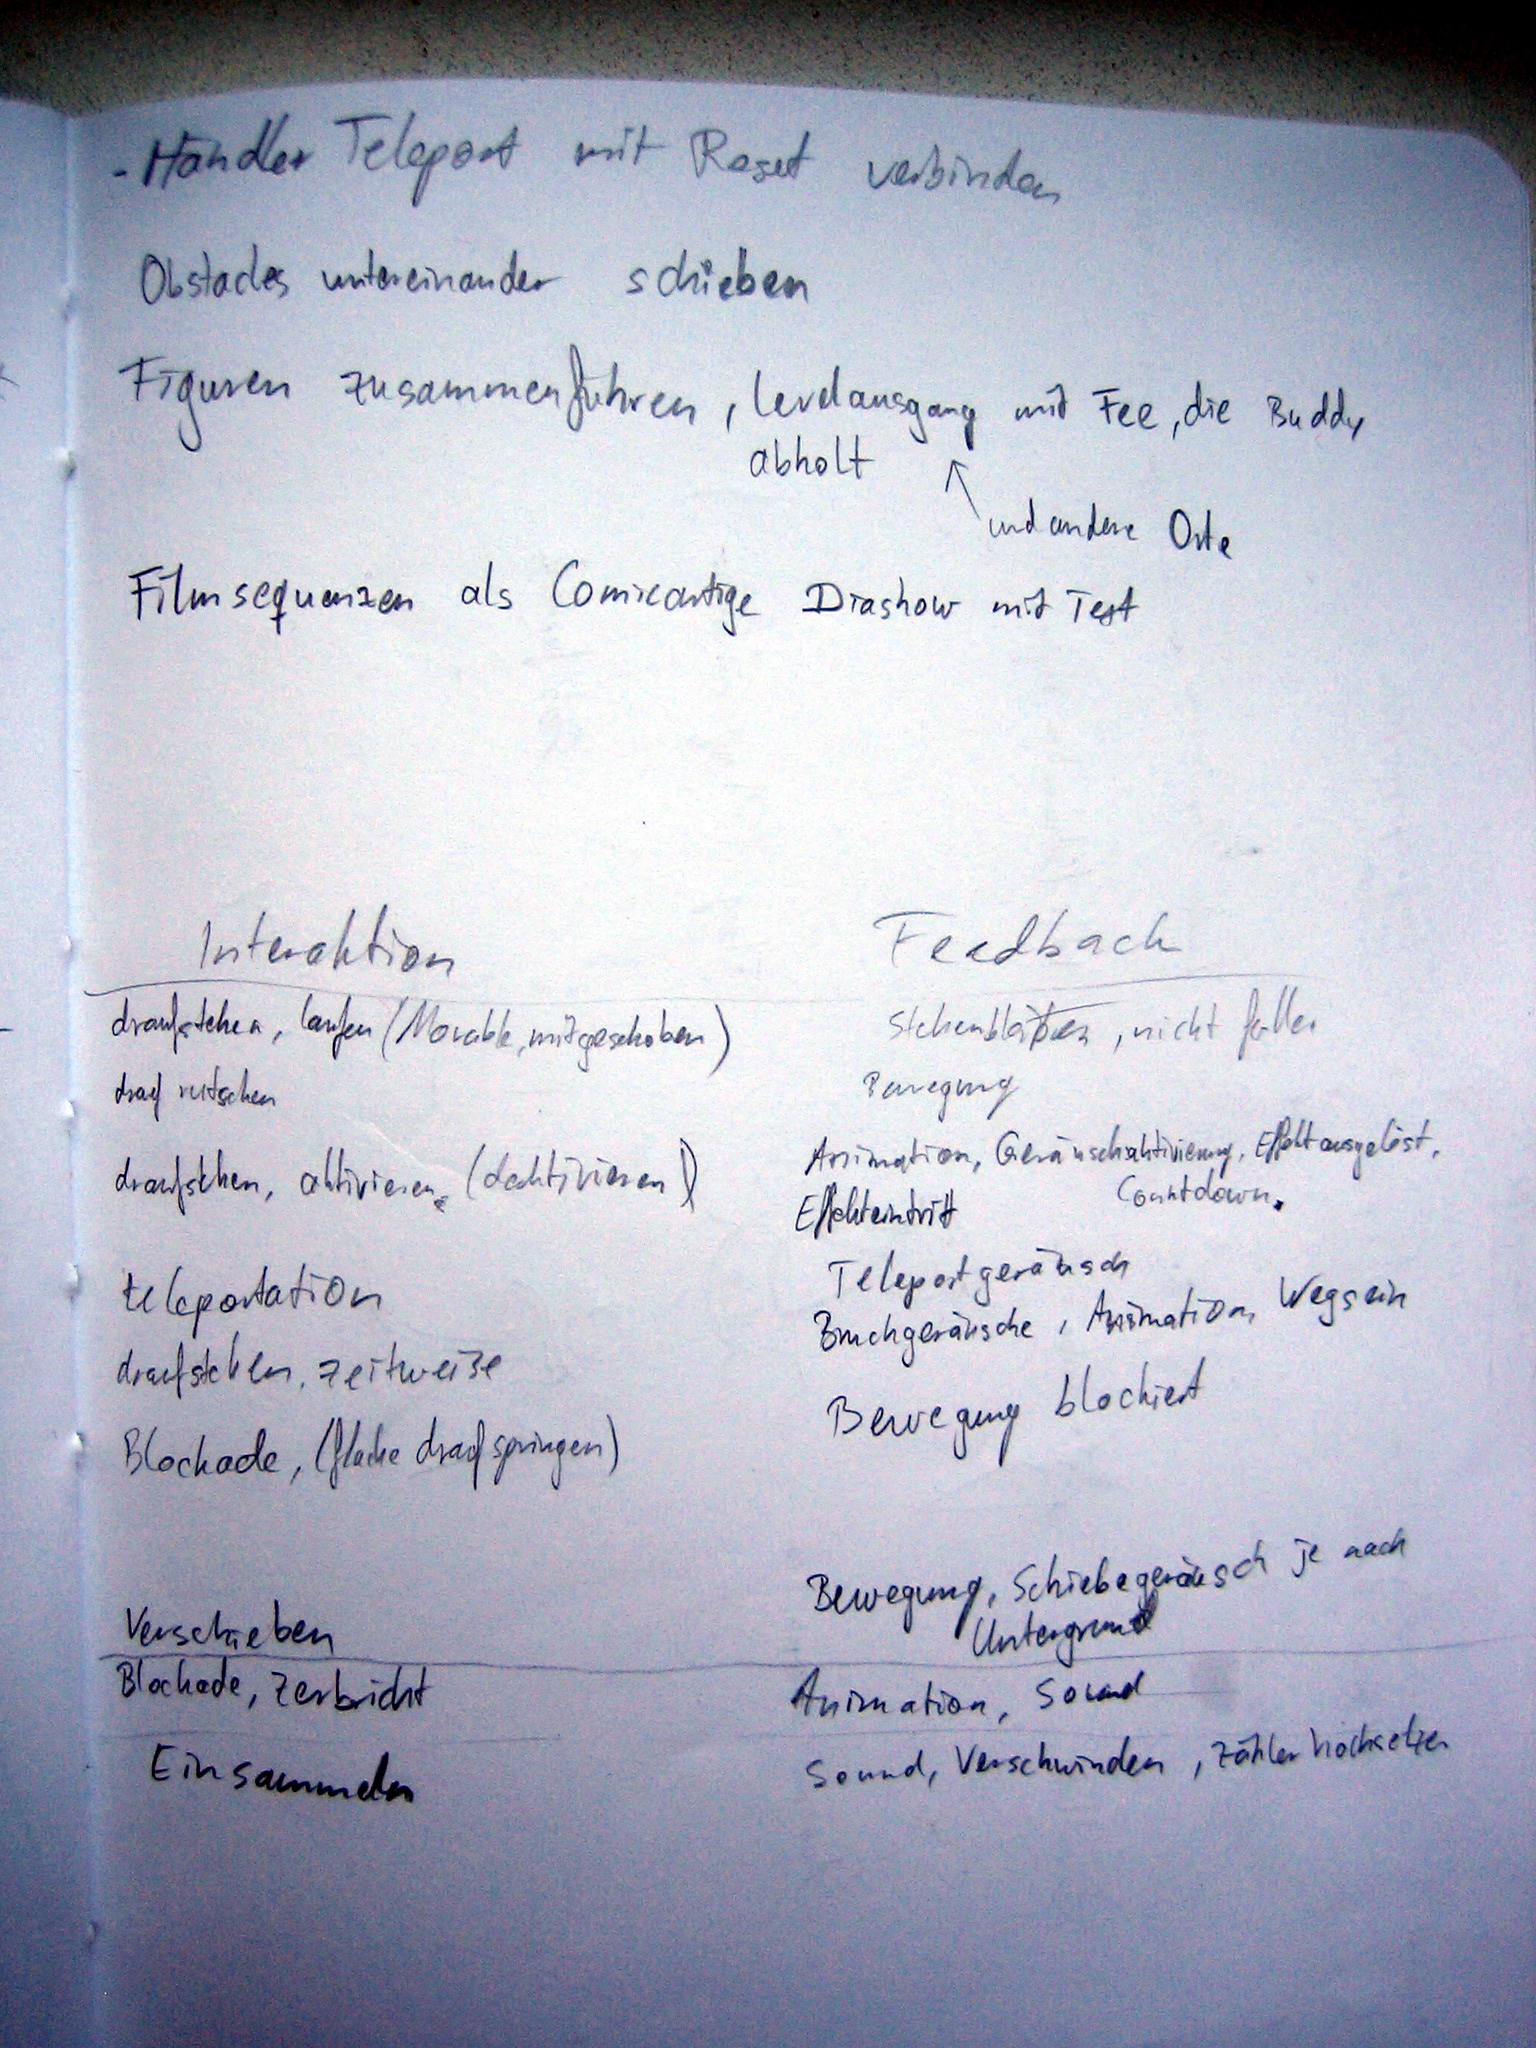 - Händler Teleport mit Reset verbinden
Obstacles untereinander schieben
Figuren zusammenführen, Levelausgang mit Fee, die Buddy
abholt
und andere Orte
Filmsequenzen als Comicartige Diashow mit Text
Interaktion Feedback
draufstehen, laufen (Movable, mitgeschoben) Stehenbleiben, nicht fallen
drauf rutschen Bewegung
draufstehen, aktivieren, (deaktivieren) Animation, Geräuschaktivierung, Effekt ausgelöst,
Effekteintritt Countdown.
teleportation Teleportgeräusch
draufstehen, zeitweise Bruchgeräusche, Animation, Wegsein
Blockade, (draufspringen) Bewegung blockiert
Verschieben Bewegung, Schiebegeräusch je nach
Untergrund
Blockade, zerbricht Animation, Sound
Einsammeln Sound, Verschwinden, Zähler hochsetzen